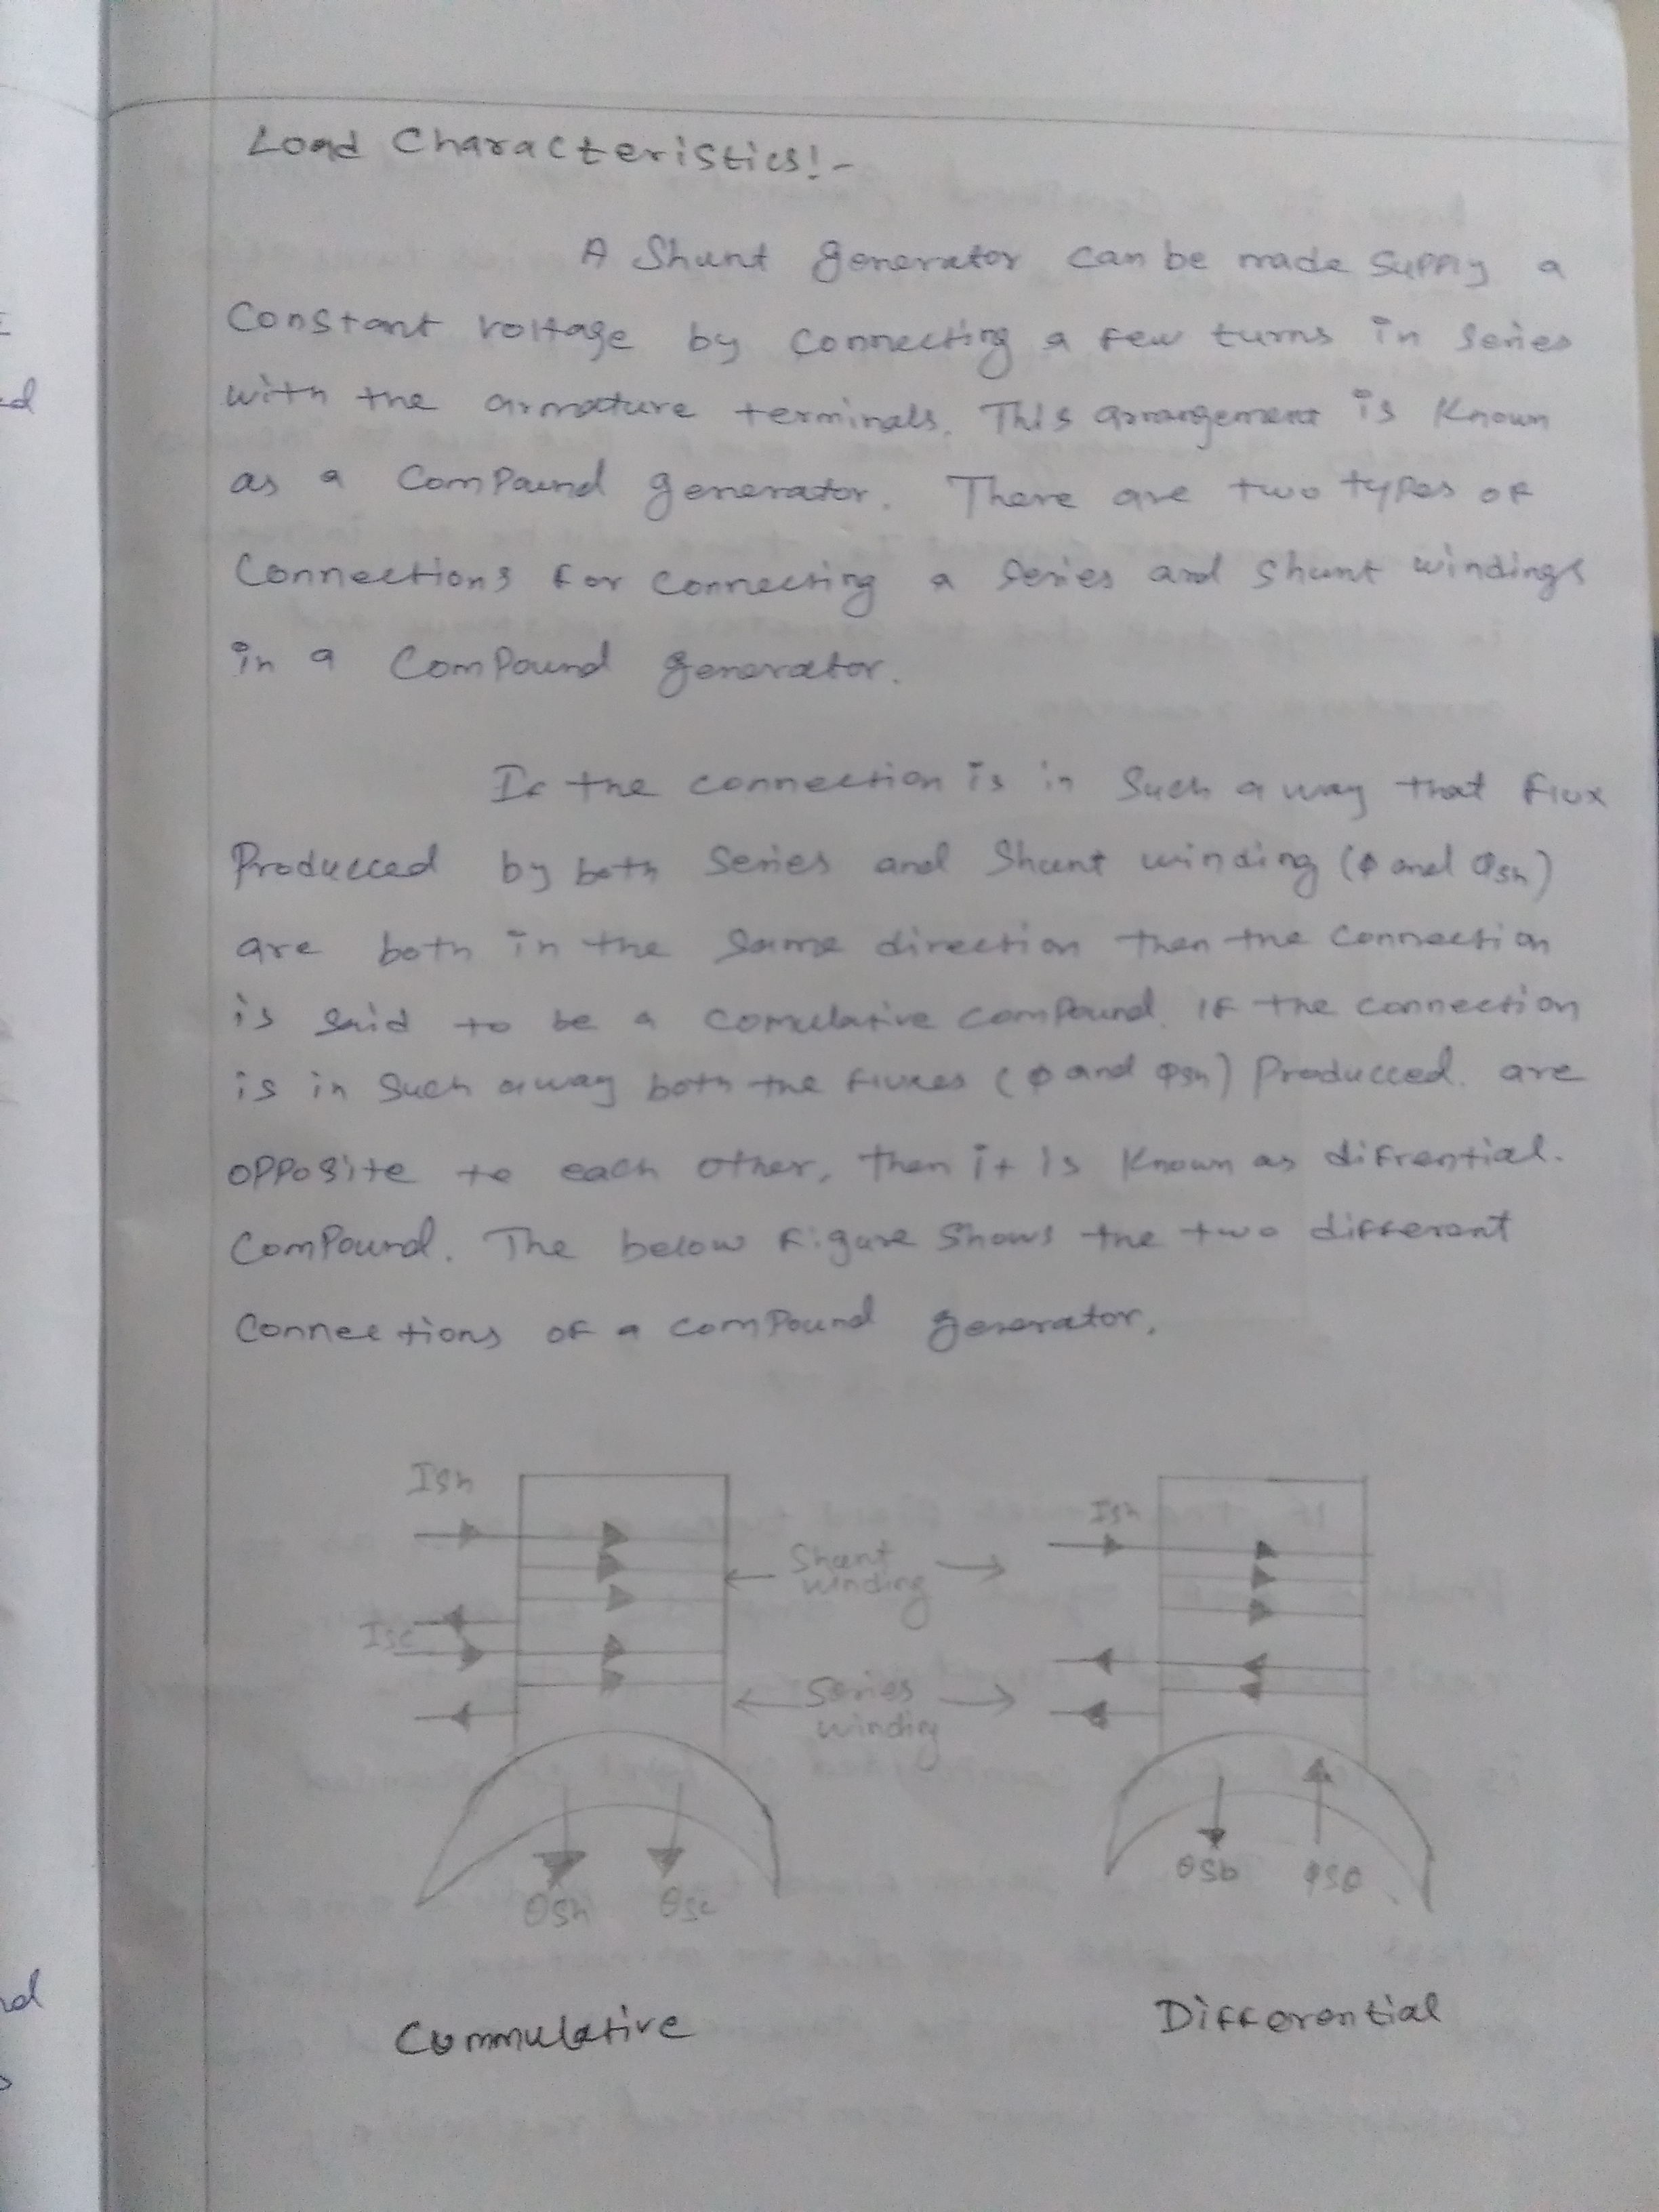 Load Characteristics:-
A Shunt generator can be made supply a
Constant voltage by connecting a few turns in series
with the armature terminals. This arrangement is known
as a Compound generator. There are two types of
Connections for connecting a series and shunt windings
in a Compound generator.
If the connection is in such a way that flux
Producced by both series and shunt winding (φ and φsh)
are both in the same direction then the connection
is said to be a comulative compound. If the connection
is in such away both the fluxes (φ and φsh) Producced are
opposite to each other, then it is known as difrential.
Compound. The below figure shows the two different
Connections of a compound generator.
Ish
Ish
Shunt
winding
Ise
Series
winding
θsh
θse
θsb
φsθ
Cummulative
Differential
d